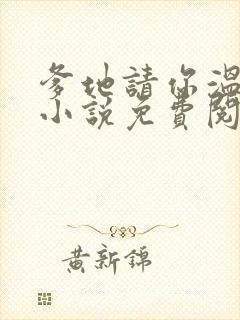 爹地請你溫
小說免費閱
黃新錦